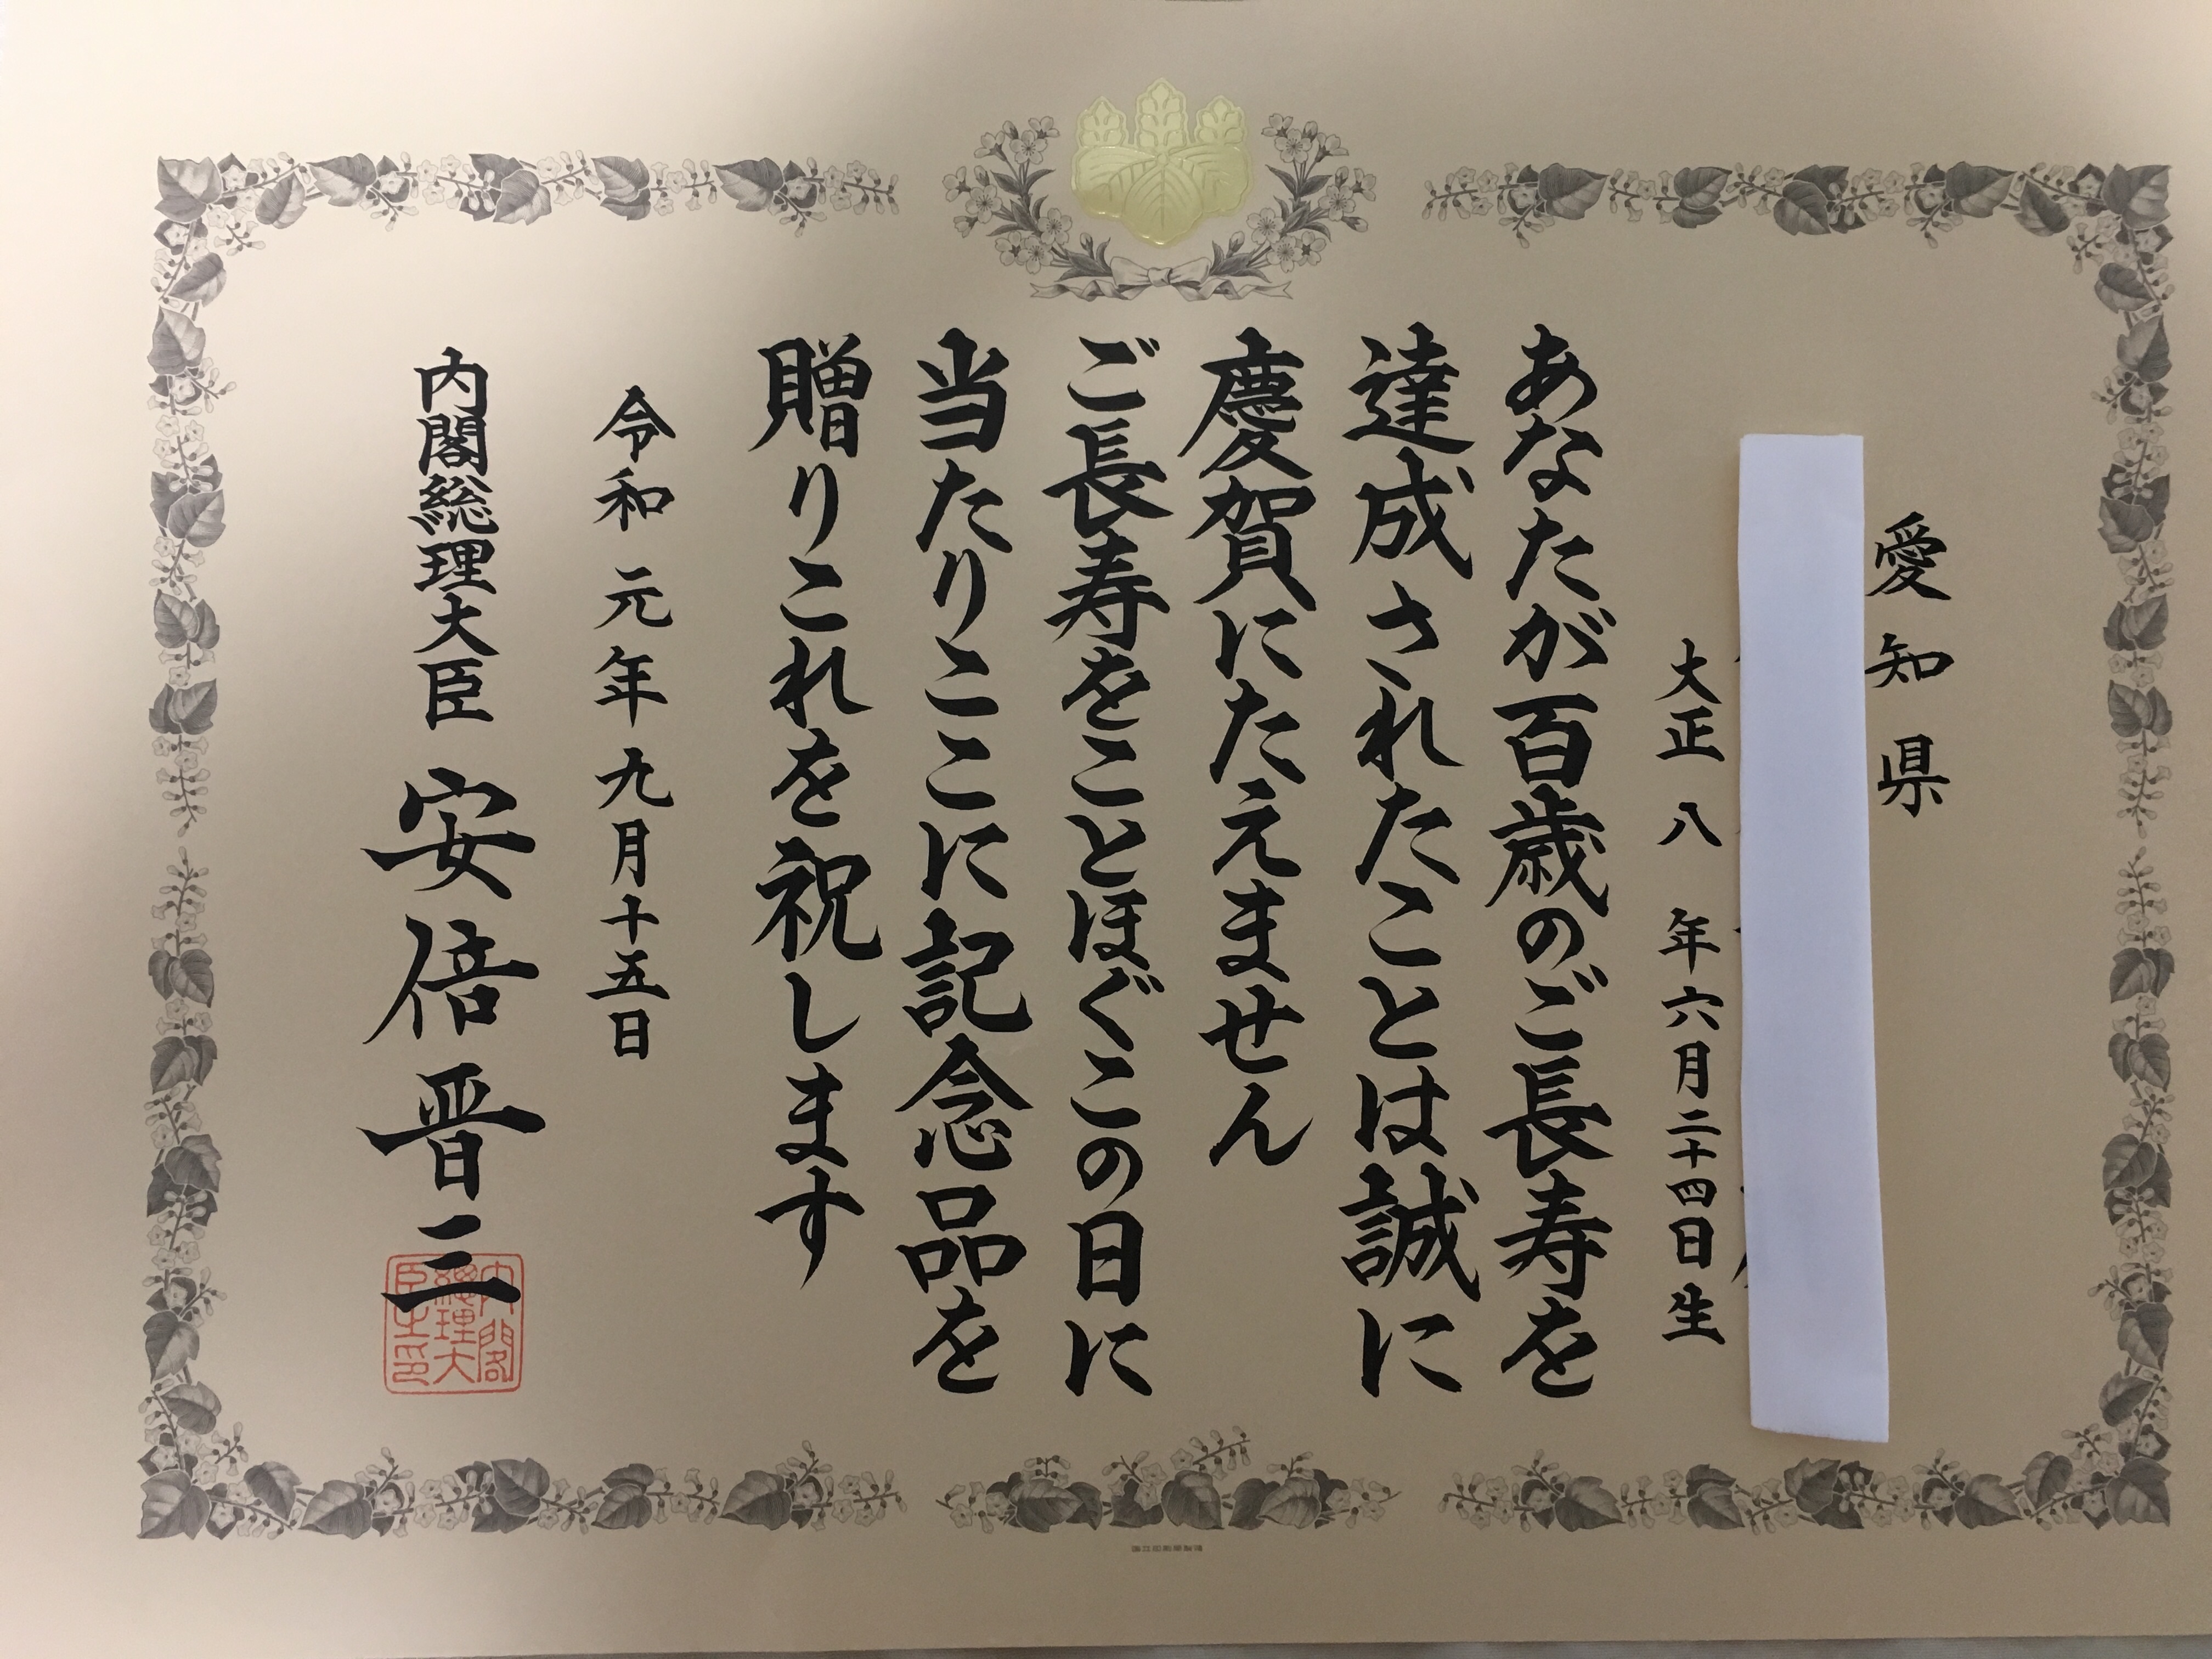 愛知県
大正八年六月二十四日生
あなたが百歳のご長寿を
達成されたことは誠に
慶賀にたえません
ご長寿をことほぐこの日に
当たりここに記念品を
贈りこれを祝します
令和元年九月十五日
内閣総理大臣 安倍晋三
内閣
總理大
臣之印